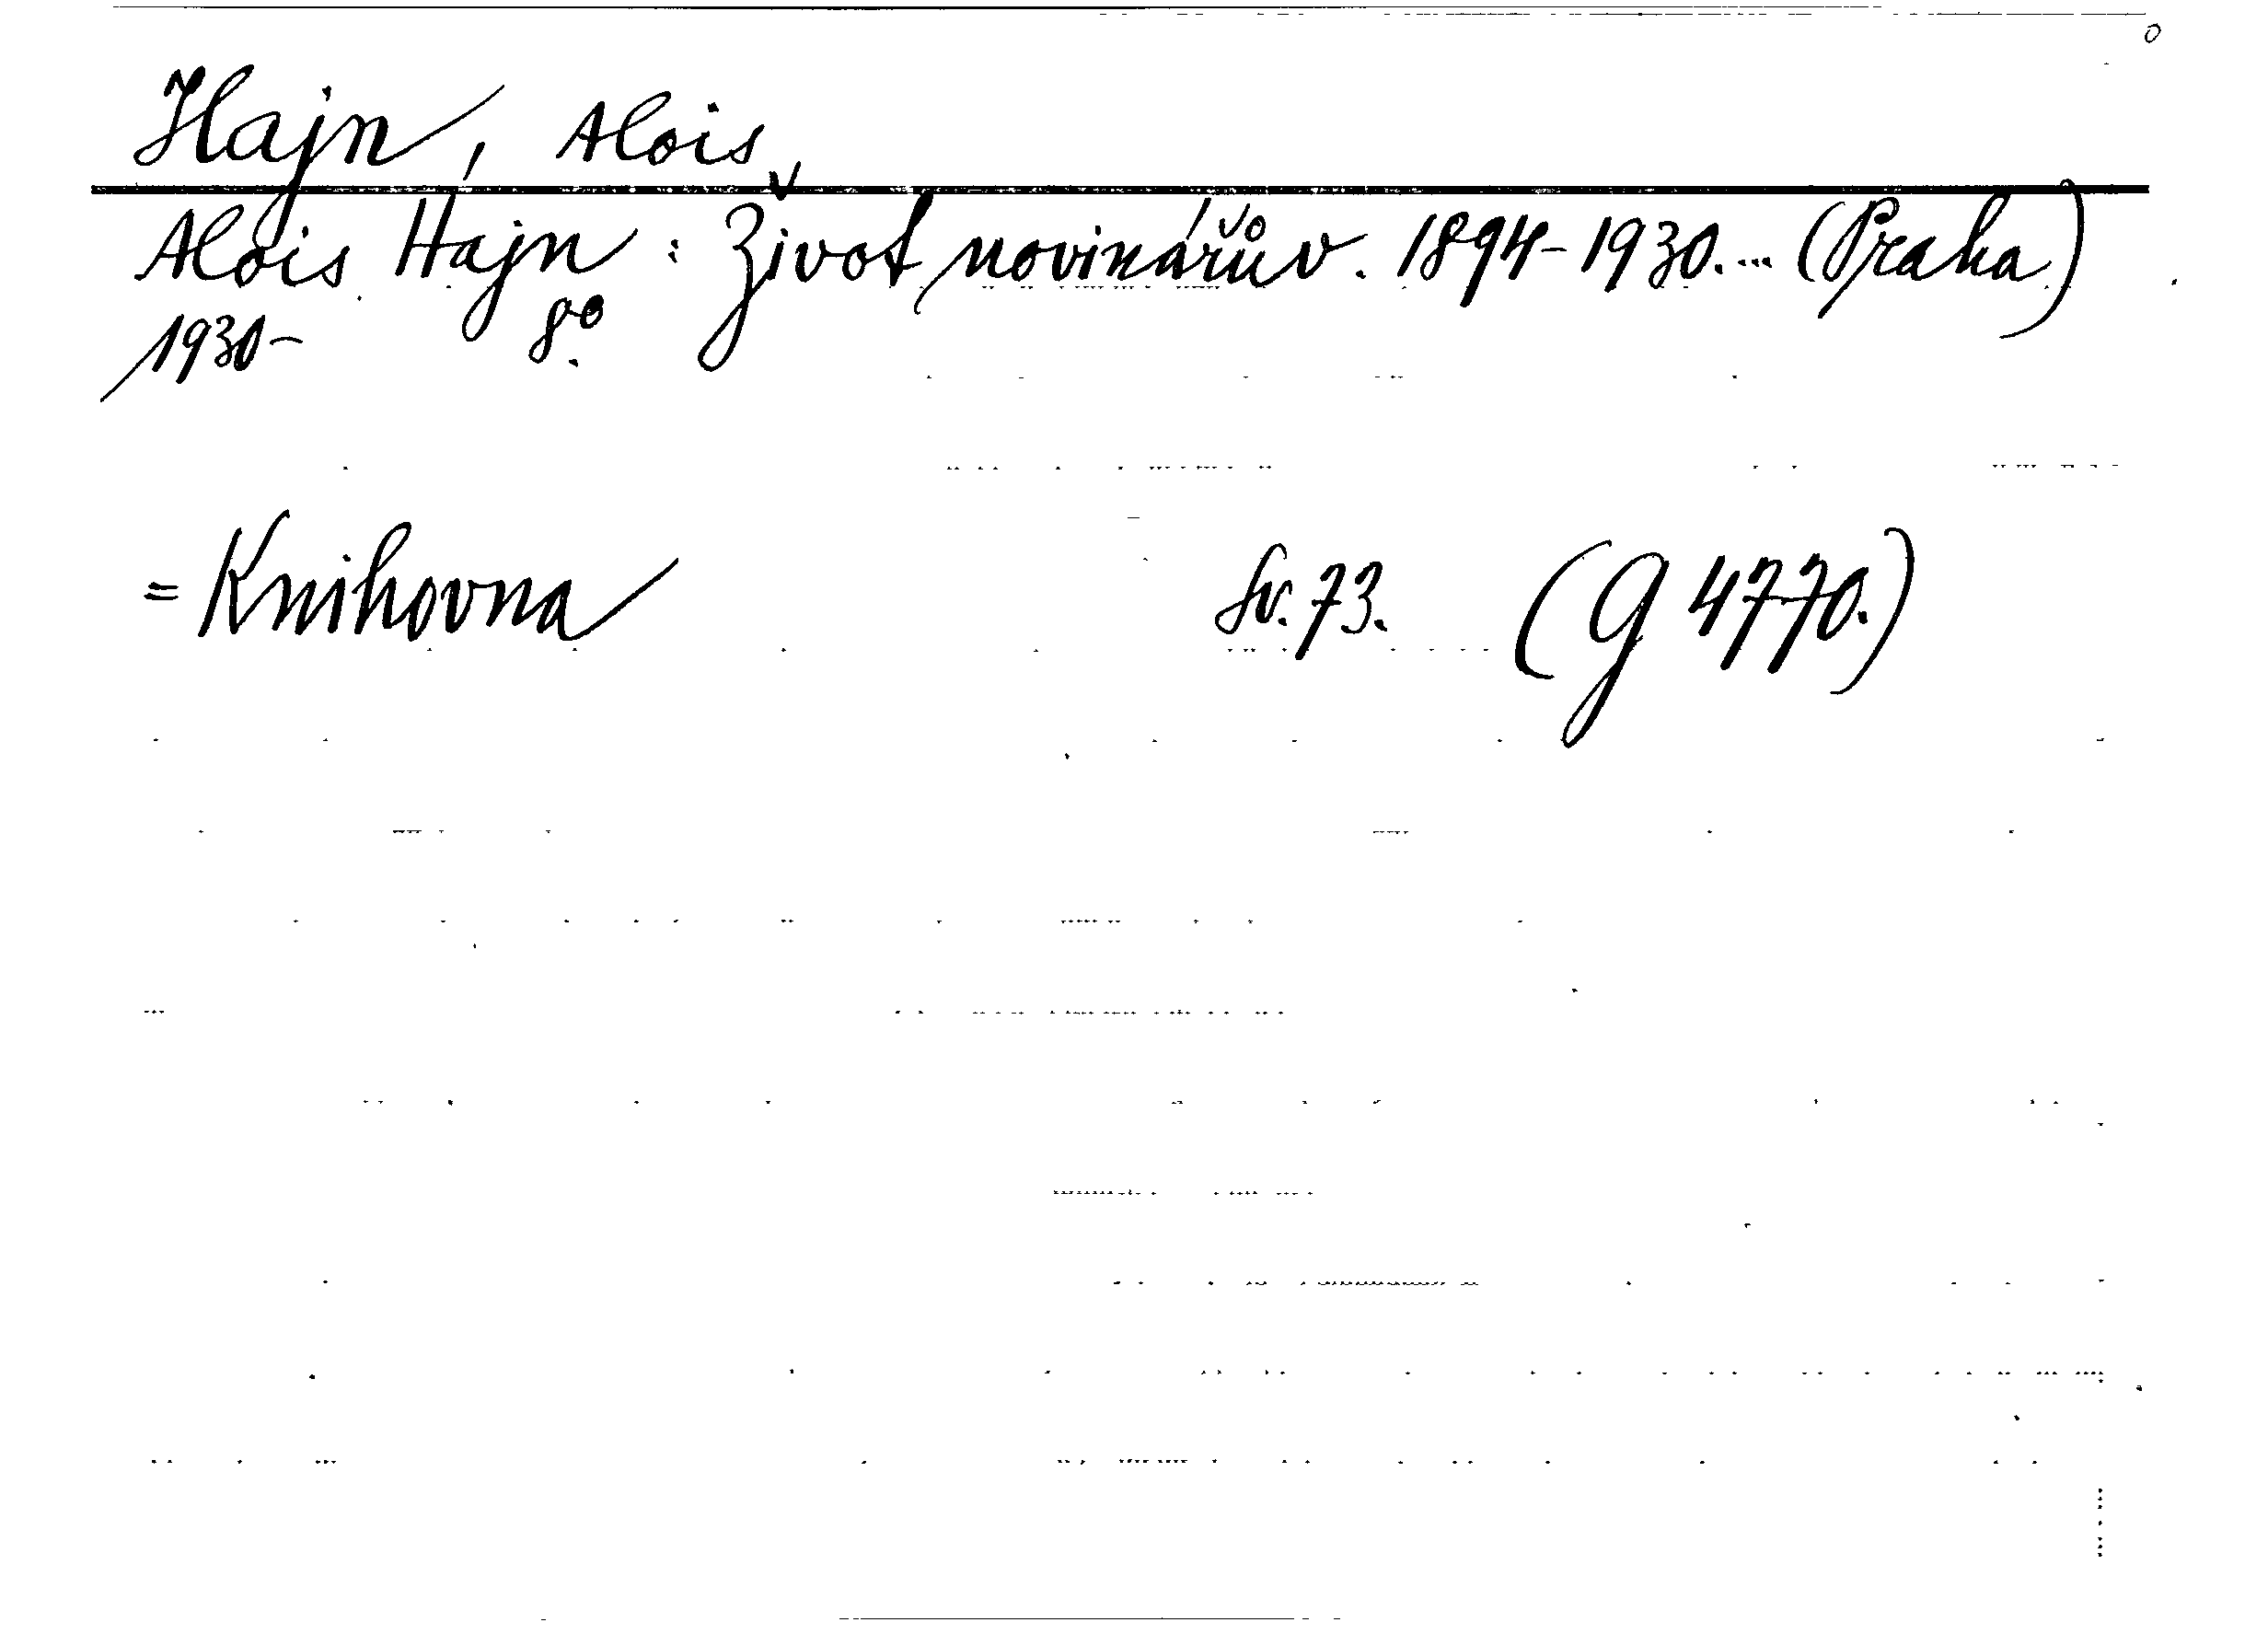 Hajn, Alois
Alois Hajn: Život novinářův. 1894-1930.... (Praha)
1930- 8°.
= Knihovna Sv. 73. (G 4770.)